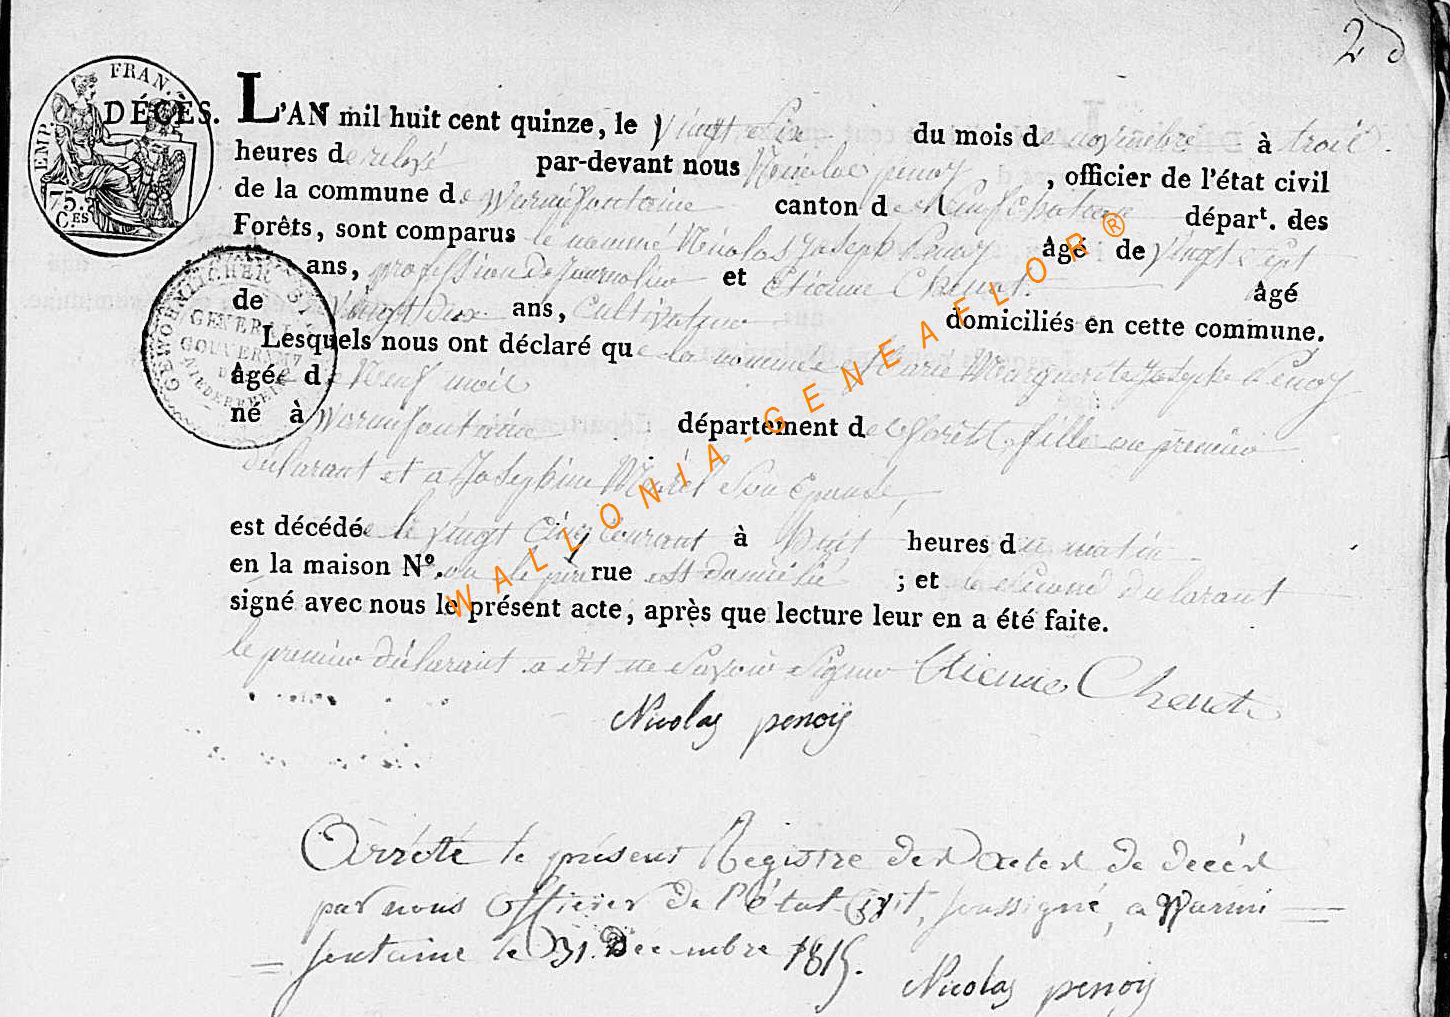 2
EMP. FRAN.
75. CES
DÉCÈS. L'AN mil huit cent quinze, le vingt six du mois de novembre à trois
heures de relevé par-devant nous Nicolas penoy, officier de l'état civil
de la commune de Warmifontaine canton de Neufchateau départ. des
Forêts, sont comparus le nommé Nicolas Joseph Penoy âgé de vingt sept
ans, profession de Journalier et Etienne Chenot. âgé
de vingt deux ans, Cultivateur domiciliés en cette commune.
Lesquels nous ont déclaré que la nommée Marie Marguerite Josephe Penoy
âgée de Neuf mois
né à Warmifontaine département de forêts, fille au premier
déclarant et a Josephine son Epouse,
est décédée le vingt Cinq courant à huit heures du matin
en la maison N°. ou le père rue est domicilié ; et le second déclarant
signé avec nous le présent acte, après que lecture leur en a été faite.
le premier déclarant a dit ne Savoir Signer Etienne Chenot
Nicolas penoÿ
GEWOHNLICHER
GENERAL
GOUVERNM
NIEDERRHEIN
Arrêté le présent Registre des Actes de décès
par nous Officier de l'état Civil, soussigné, a Warmi
fontaine le 31. Decembre 1815.
Nicolas penoÿ
WALLONIA-GENEAFLOR®